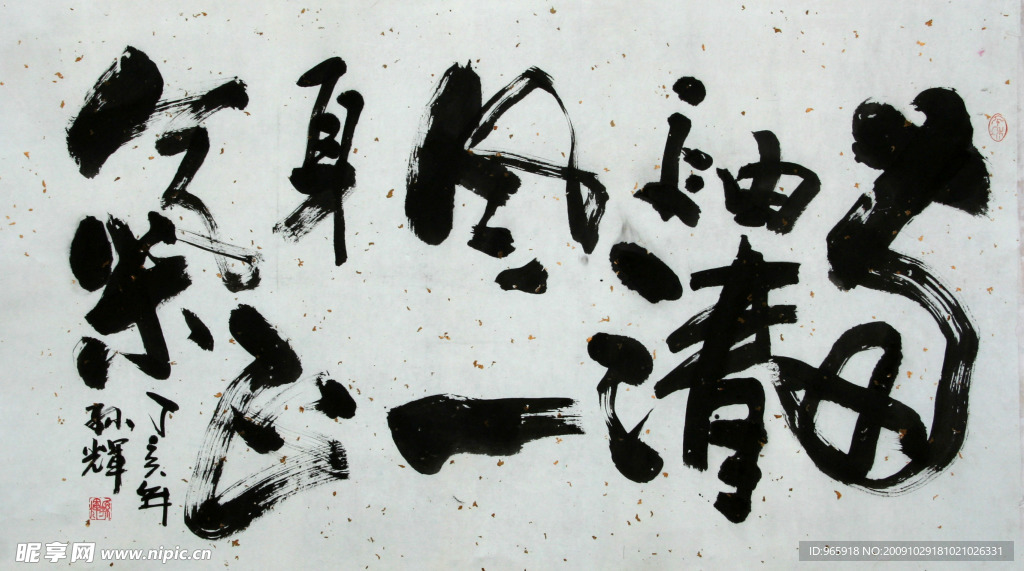 两
袖清
风一
身正
氣
丁亥年
孙輝
昵享网 www.nipic.cn
ID:965918 NO:20091029181021026331